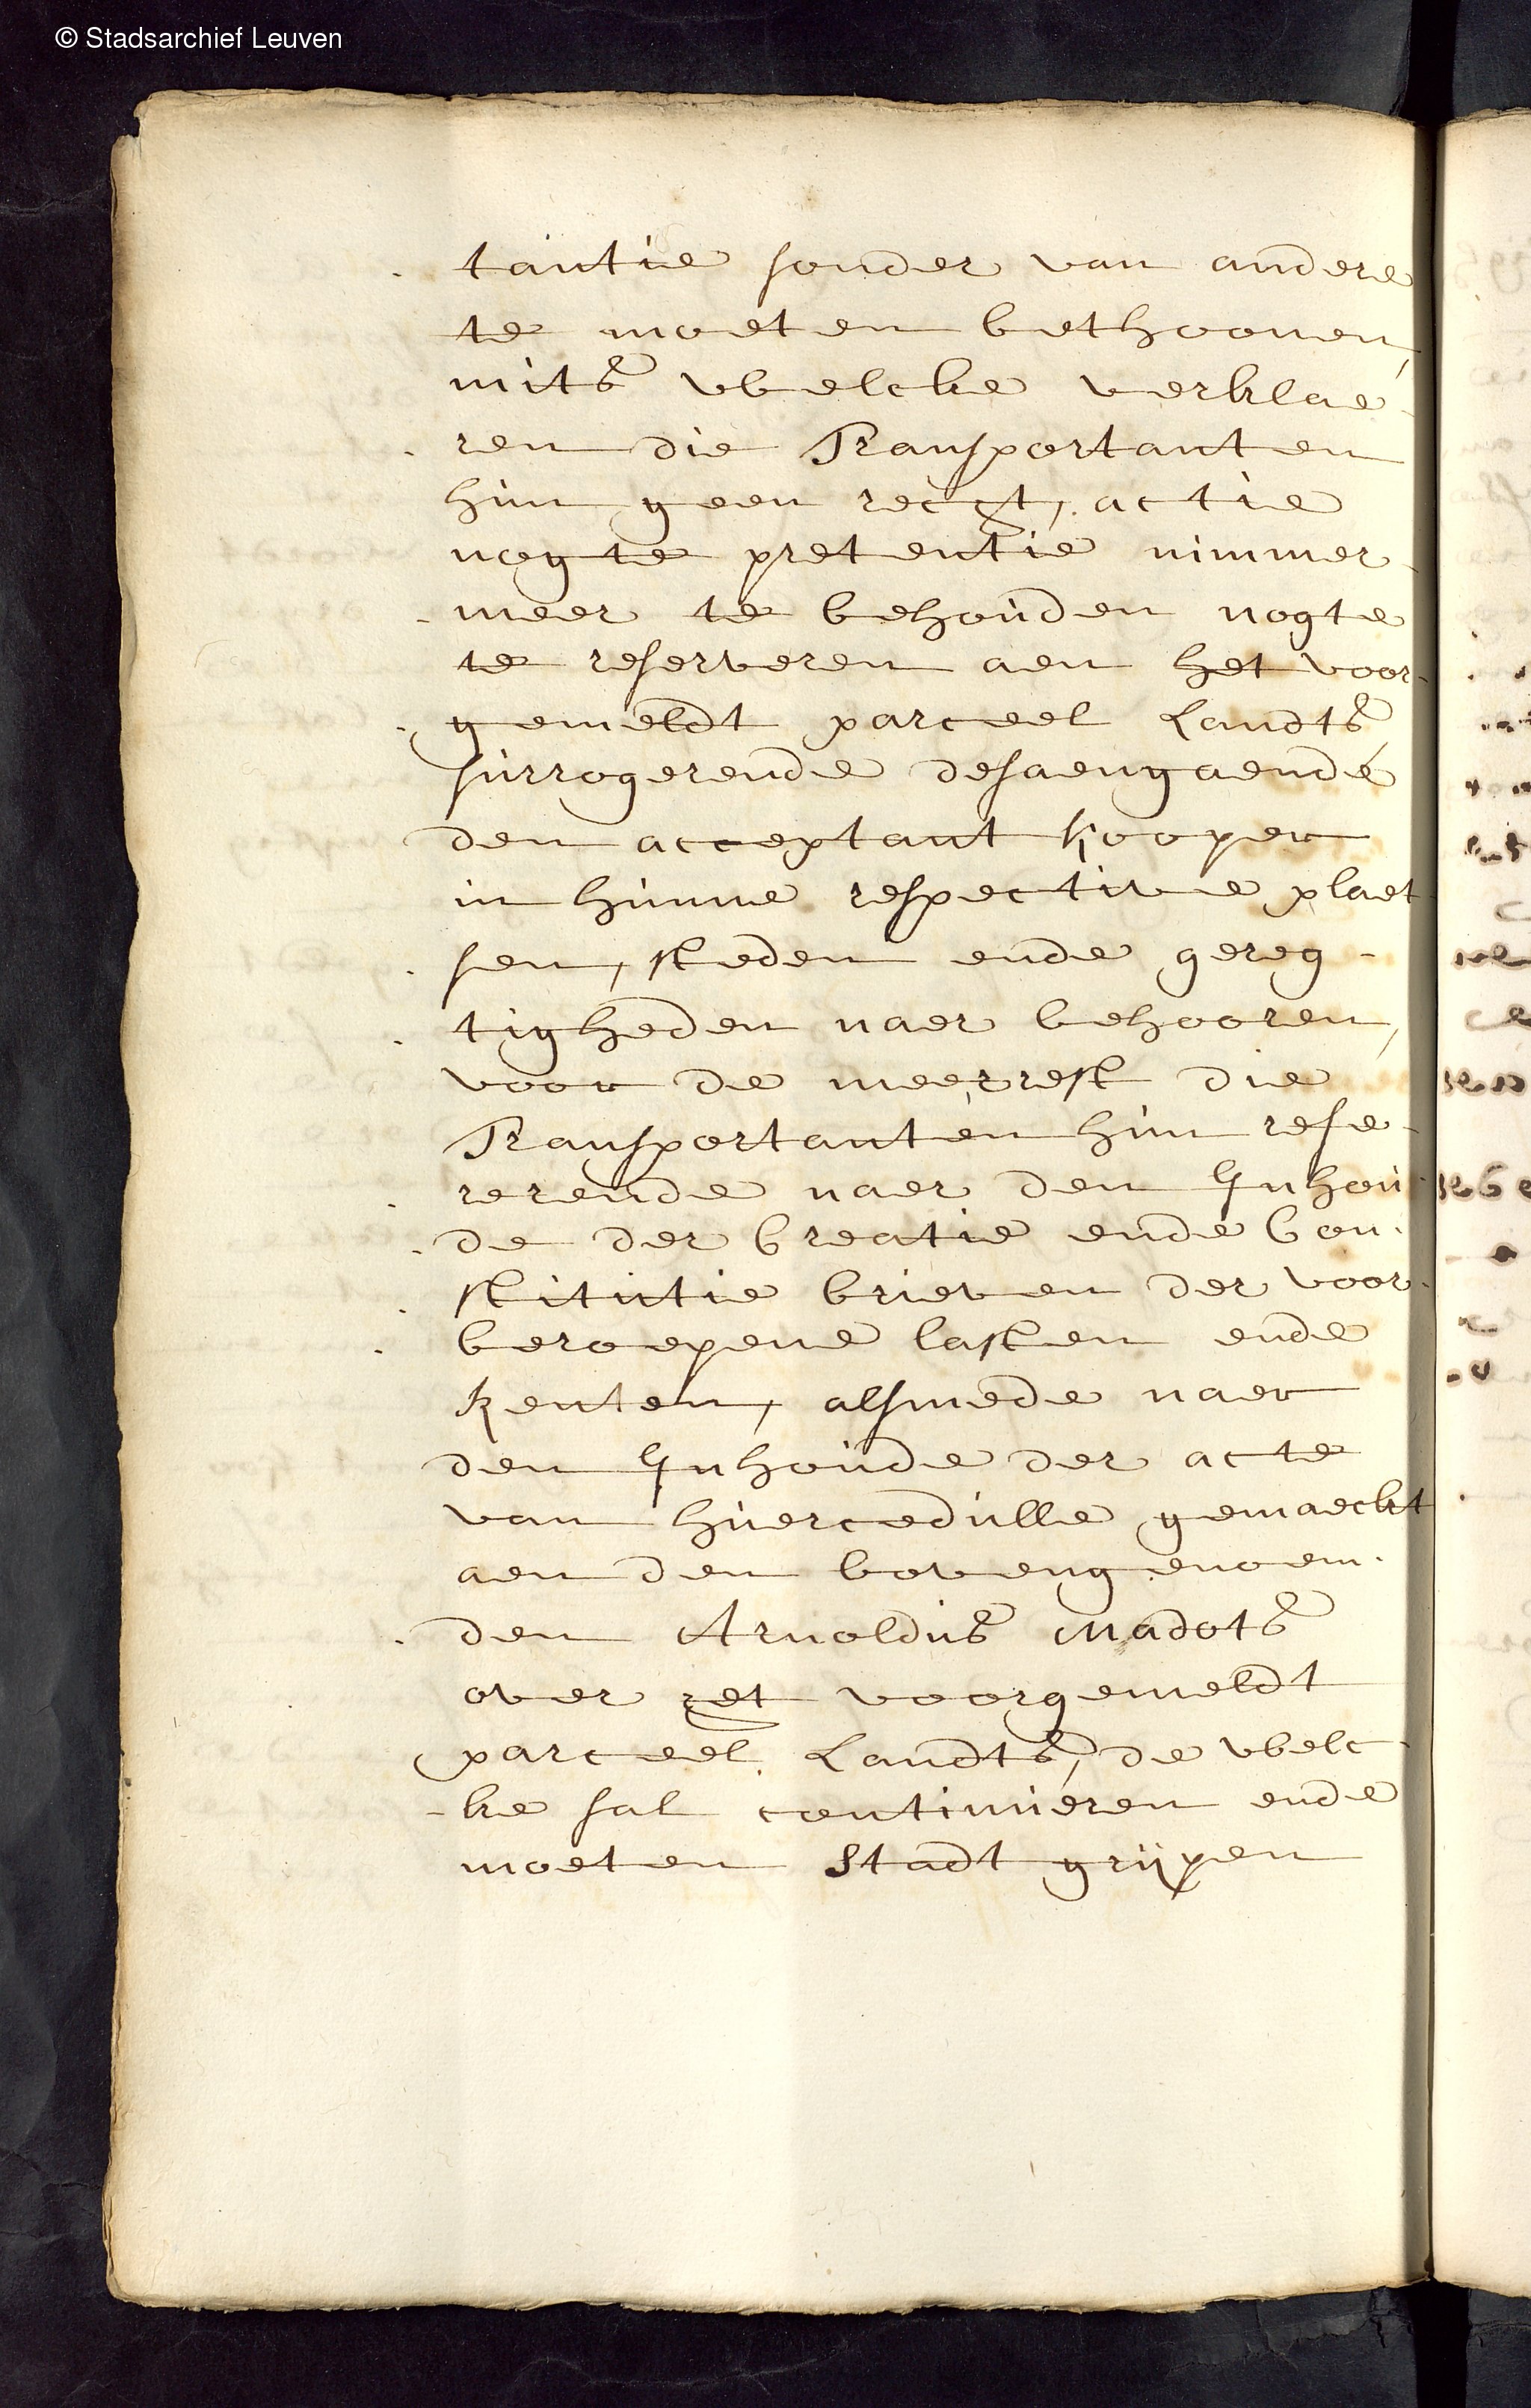 © Stadsarchief Leuven
tantie sonder van andere
te moeten bethoonen,
mits welcke verklae
ren die Transportanten
hun geen recgt, actie
nogte pretentie nimmer-
meer te behouden nogte
te reserveren aen het voor-
gemeldt parceel Landts,
surrogerende desaengaende
den acceptant kooper
in hunne respective plaet
sen, steden ende gereg-
tigheden naer behooren,
voor de meerrest die
Transportanten hun refe-
rerende naer den Inhou
de der Creatie ende Con-
stitutie brieven der voor-
beroepene lasten ende
Renten, alsmede naer
den Inhoude der acte
van huercedulle gemaeckt
aen den bovengenoem-
den Arnoldus Madots
over het voorgemeldt
parceel Landts, de welc-
ke sal continueren ende
moeten Stadt grijpen